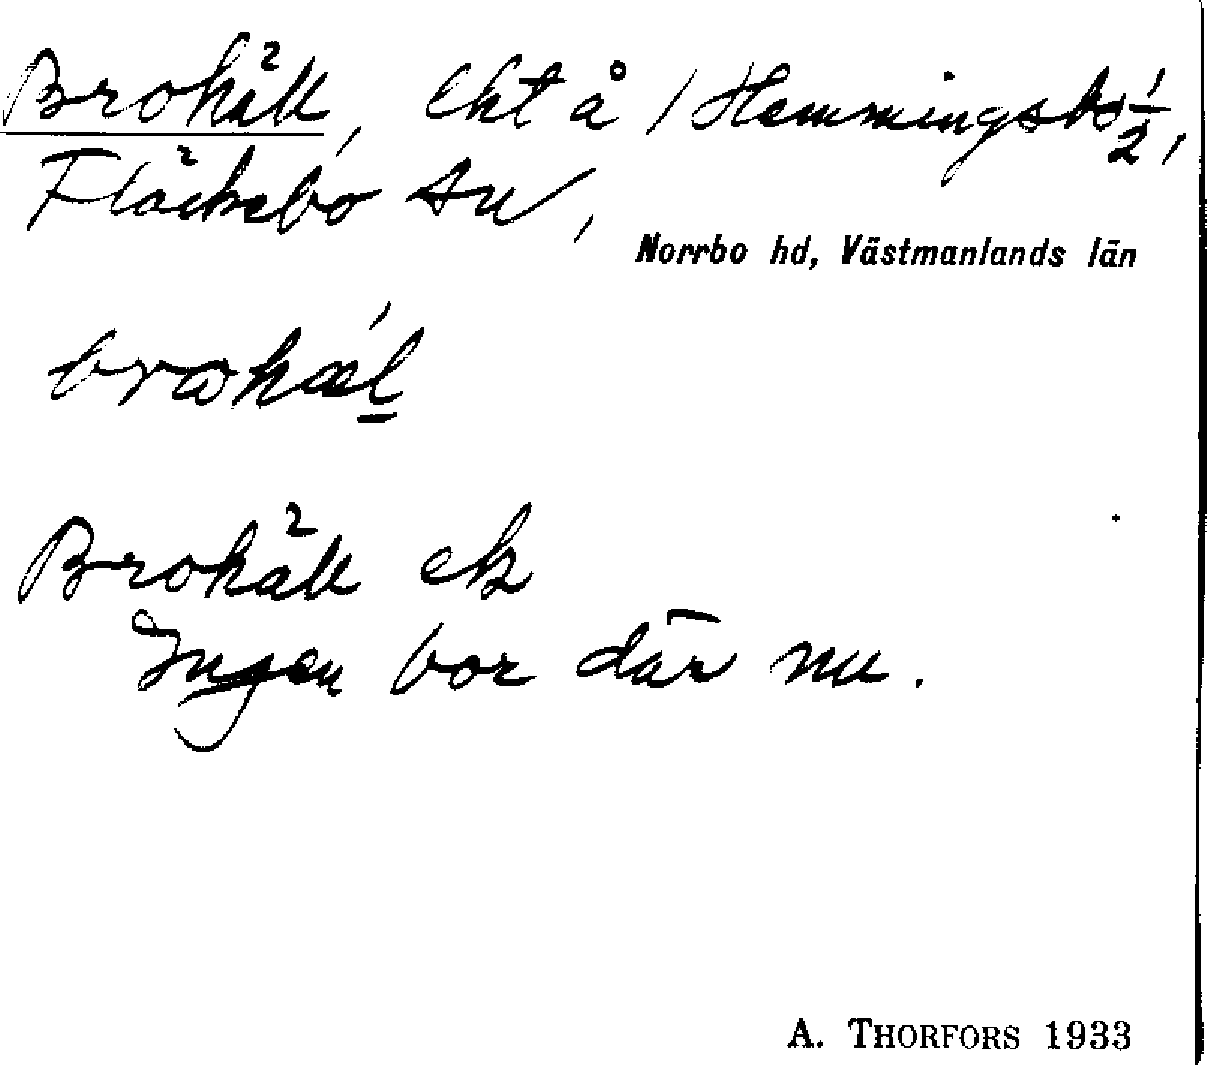 Brohäll, lht å 1 Hemmingsbo 1/2,
Fläckebo sn,
Norrbo hd, Västmanlands län
brωhæ´l
Brohäll ek
Ingen bor där nu.
A. THORFORS 1933